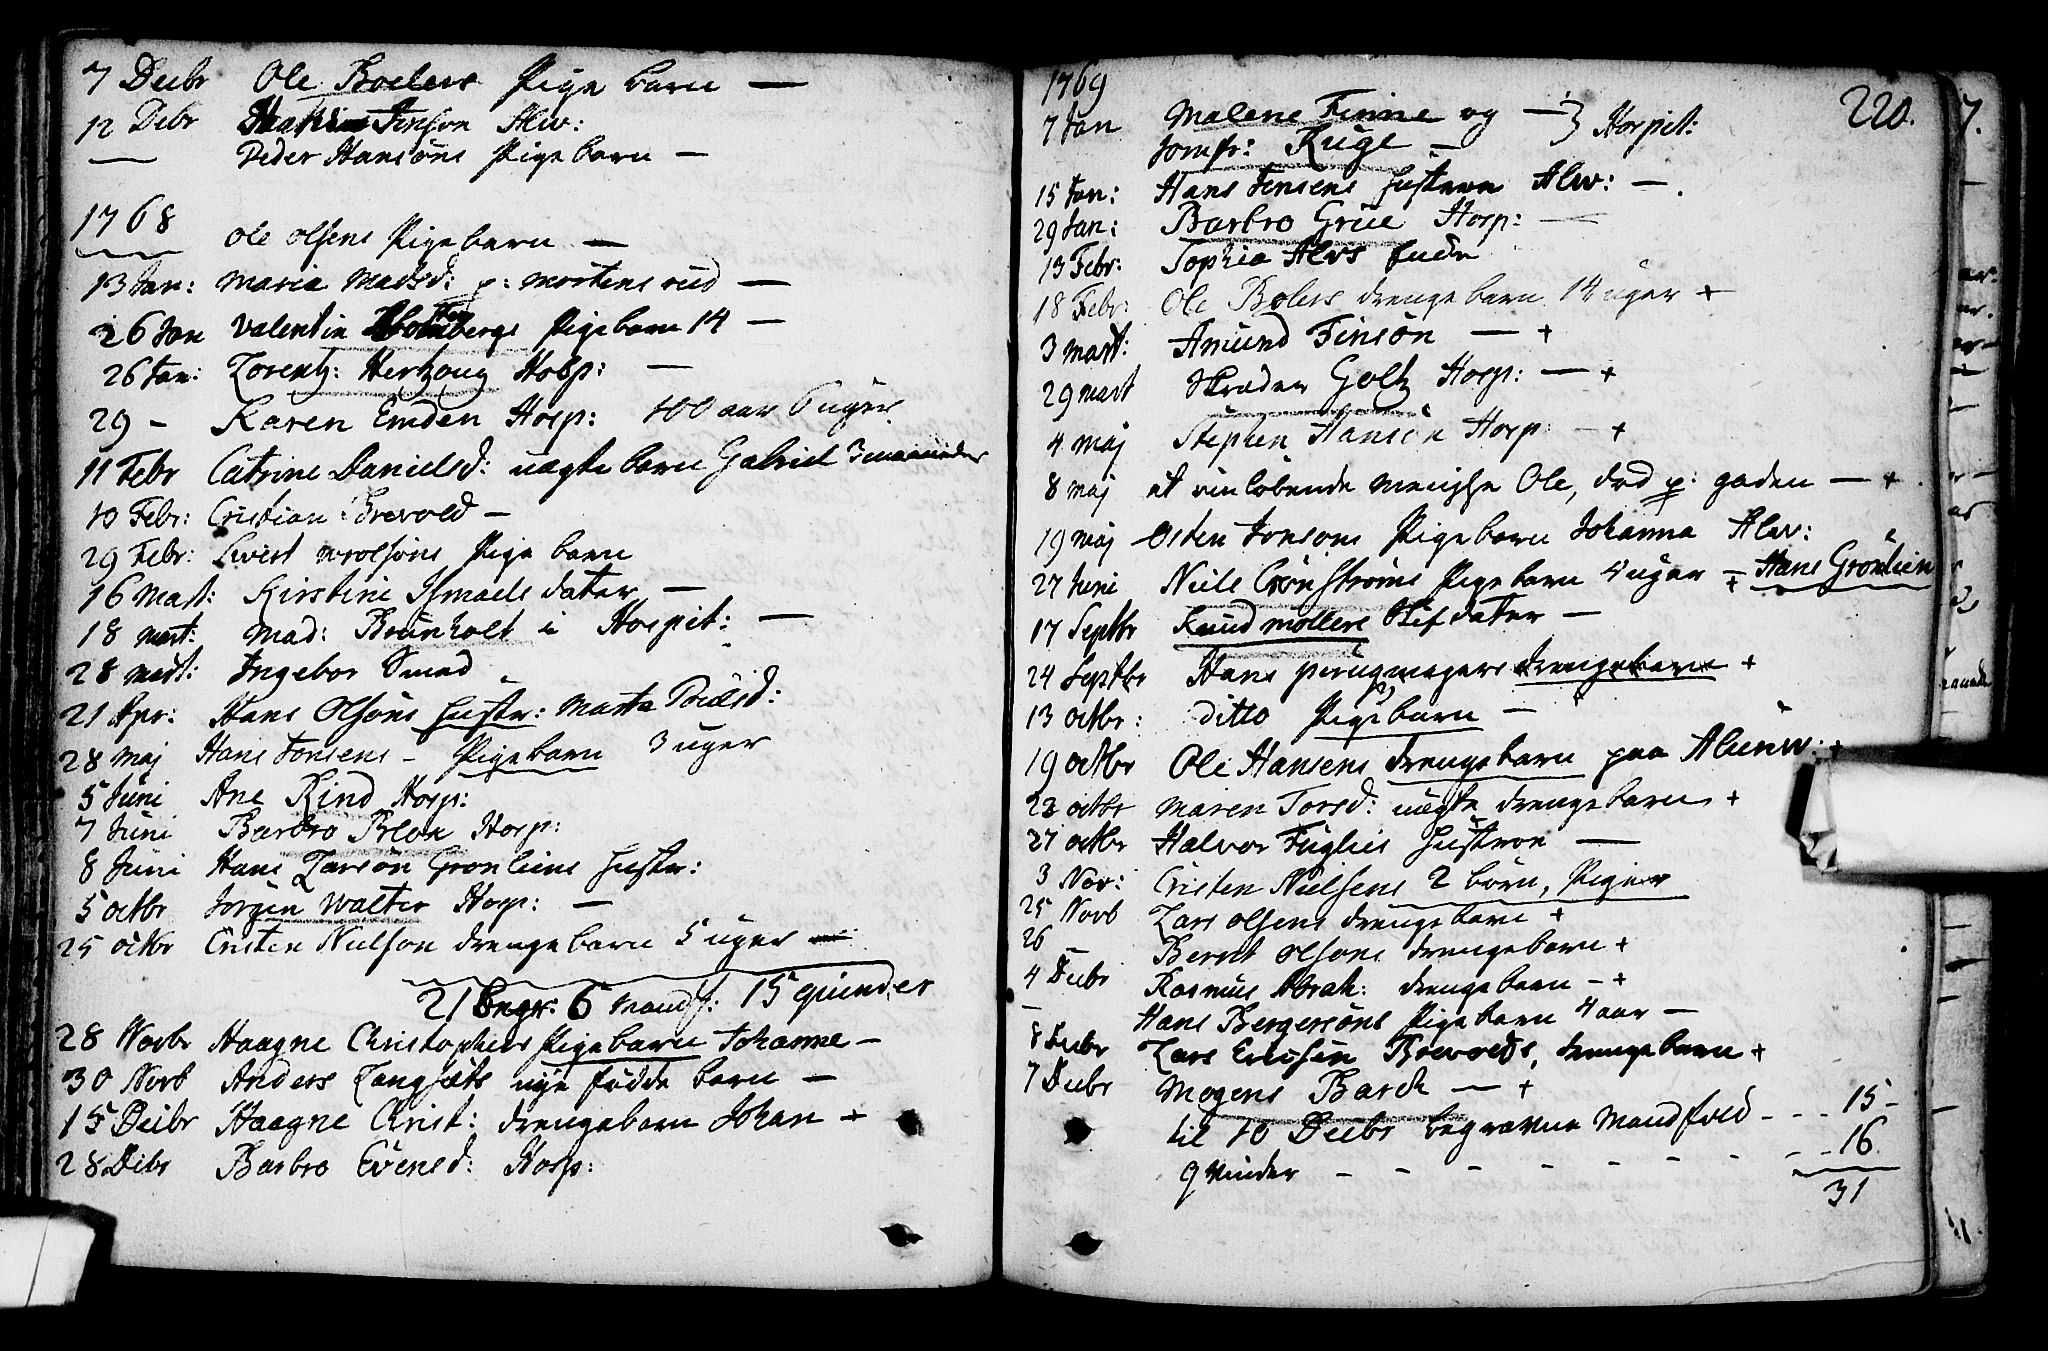 7 Decbr Ole Boelers Pige barn —
12 Debr Jenson Alw:
— Peder Hansöns Pigebarn —
1768
Ole Olsens Pigebarn —
13 Jan: Maria Madsd: p: Mortensrud —
26 Jan Valentin Pigebarn 14 —
26 Jan: Lorentz: Hertzoug Hosp: —
29 – Karen Emden Hosp: 100 aar 6 uger
11 Febr Catrine Danielsd: uægte barn Gabriel 3 maaneder
10 Febr: Cristian Brevold —
29 Febr: Sivert wrolsöns Pige barn
16 Mart: Kirstine Ismaels dater —
18 Mart: Mad: Brunholt i Hospit: —
28 Mart: Ingebor Smed
21 Apr: Hans Olsöns Hustr: Marta
28 Maj Hans Jonsens – Pigebarn 3 uger
5 Juni Ane Kind Hosp:
7 Juni Barbro Hosp:
8 Juni Hans Larsön Grönliens Hustr:
5 Octbr Jörgen Walter Hosp: —
25 Octbr Cristen Nielson drengebarn 5 uger
21 begr: 6 Mands: 15 quinder
28 Novbr Haagne Christophers Pigebarn Johanne —
30 Novb Anders Langsæts nye födde barn —
15 Deibr Haagne Crist: drengebarn Johan +
28 Debr Barbro Evensd: Hosp:
220.
1769
7 Jan Malene Finne og — } Hospit:
Jomfr: Ruge —
15 Jan: Hans Jensens Hustrue Alw: — .
29 Jan: Barbro Grue Hosp: —
13 Febr: Sophia Alvs
18 Febr: Ole Bolers drengebarn 14 uger +
3 Mart: Amund Finsön — +
29 Mart Skræder Goltz Hosp: — +
4 Maj Stephen Hansön Hosp: — +
8 Maj et omlöbende Menishe Ole, död p: gaden — +
19 Maj Osten Jonsons Pigebarn Johanna Alw:
27 Juni Niels Crönströms Pigebarn 4 uger + Hans Grönlien
17 Septbr Knud möllers Stifdater —
24 Septbr Hans perugmagers drengebarn +
13 Octbr: Ditto Pigebarn —
19 Octbr Ole Hansens drengebarn paa Alunw: +
22 Octbr Maren Torsd: uægte drengebarn +
27 Octbr Halvor Fuglies Hustroe —
3 Nov: Cristen Nielsens 2 börn, Piger
25 Novb Lars Olsens drengebarn +
26 – Bernt Olsons drengebarn +
4 Decbr Rasmus Abrah: drengebarn – +
— Hans Bergersöns Pigebarn 4 aar —
8 Decbr Lars Ericsön Brevolds, drengebarn +
7 Decbr Mogens Barck — +
til 10 Decbr begravne Mandfold - - - 15 -
qvinder - - - - - - - - - 16
31